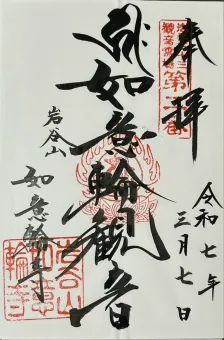 奉拝
第二番
如意輪観音
岩谷山
如意輪寺
令和七年
三月七日
岩谷山
如意
輪寺